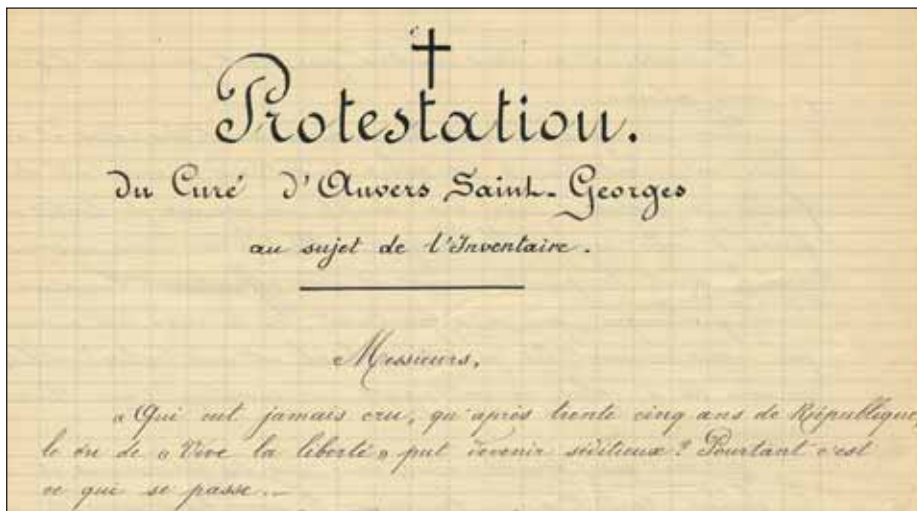 Protestation.
du Curé d'Auvers Saint-Georges
au sujet de l'Inventaire.
Messieurs,
« Qui eut jamais cru, qu'après trente cinq ans de République,
le cri de « Vive la liberté » put devenir séditieux ? Pourtant c'est
ce qui se passe...